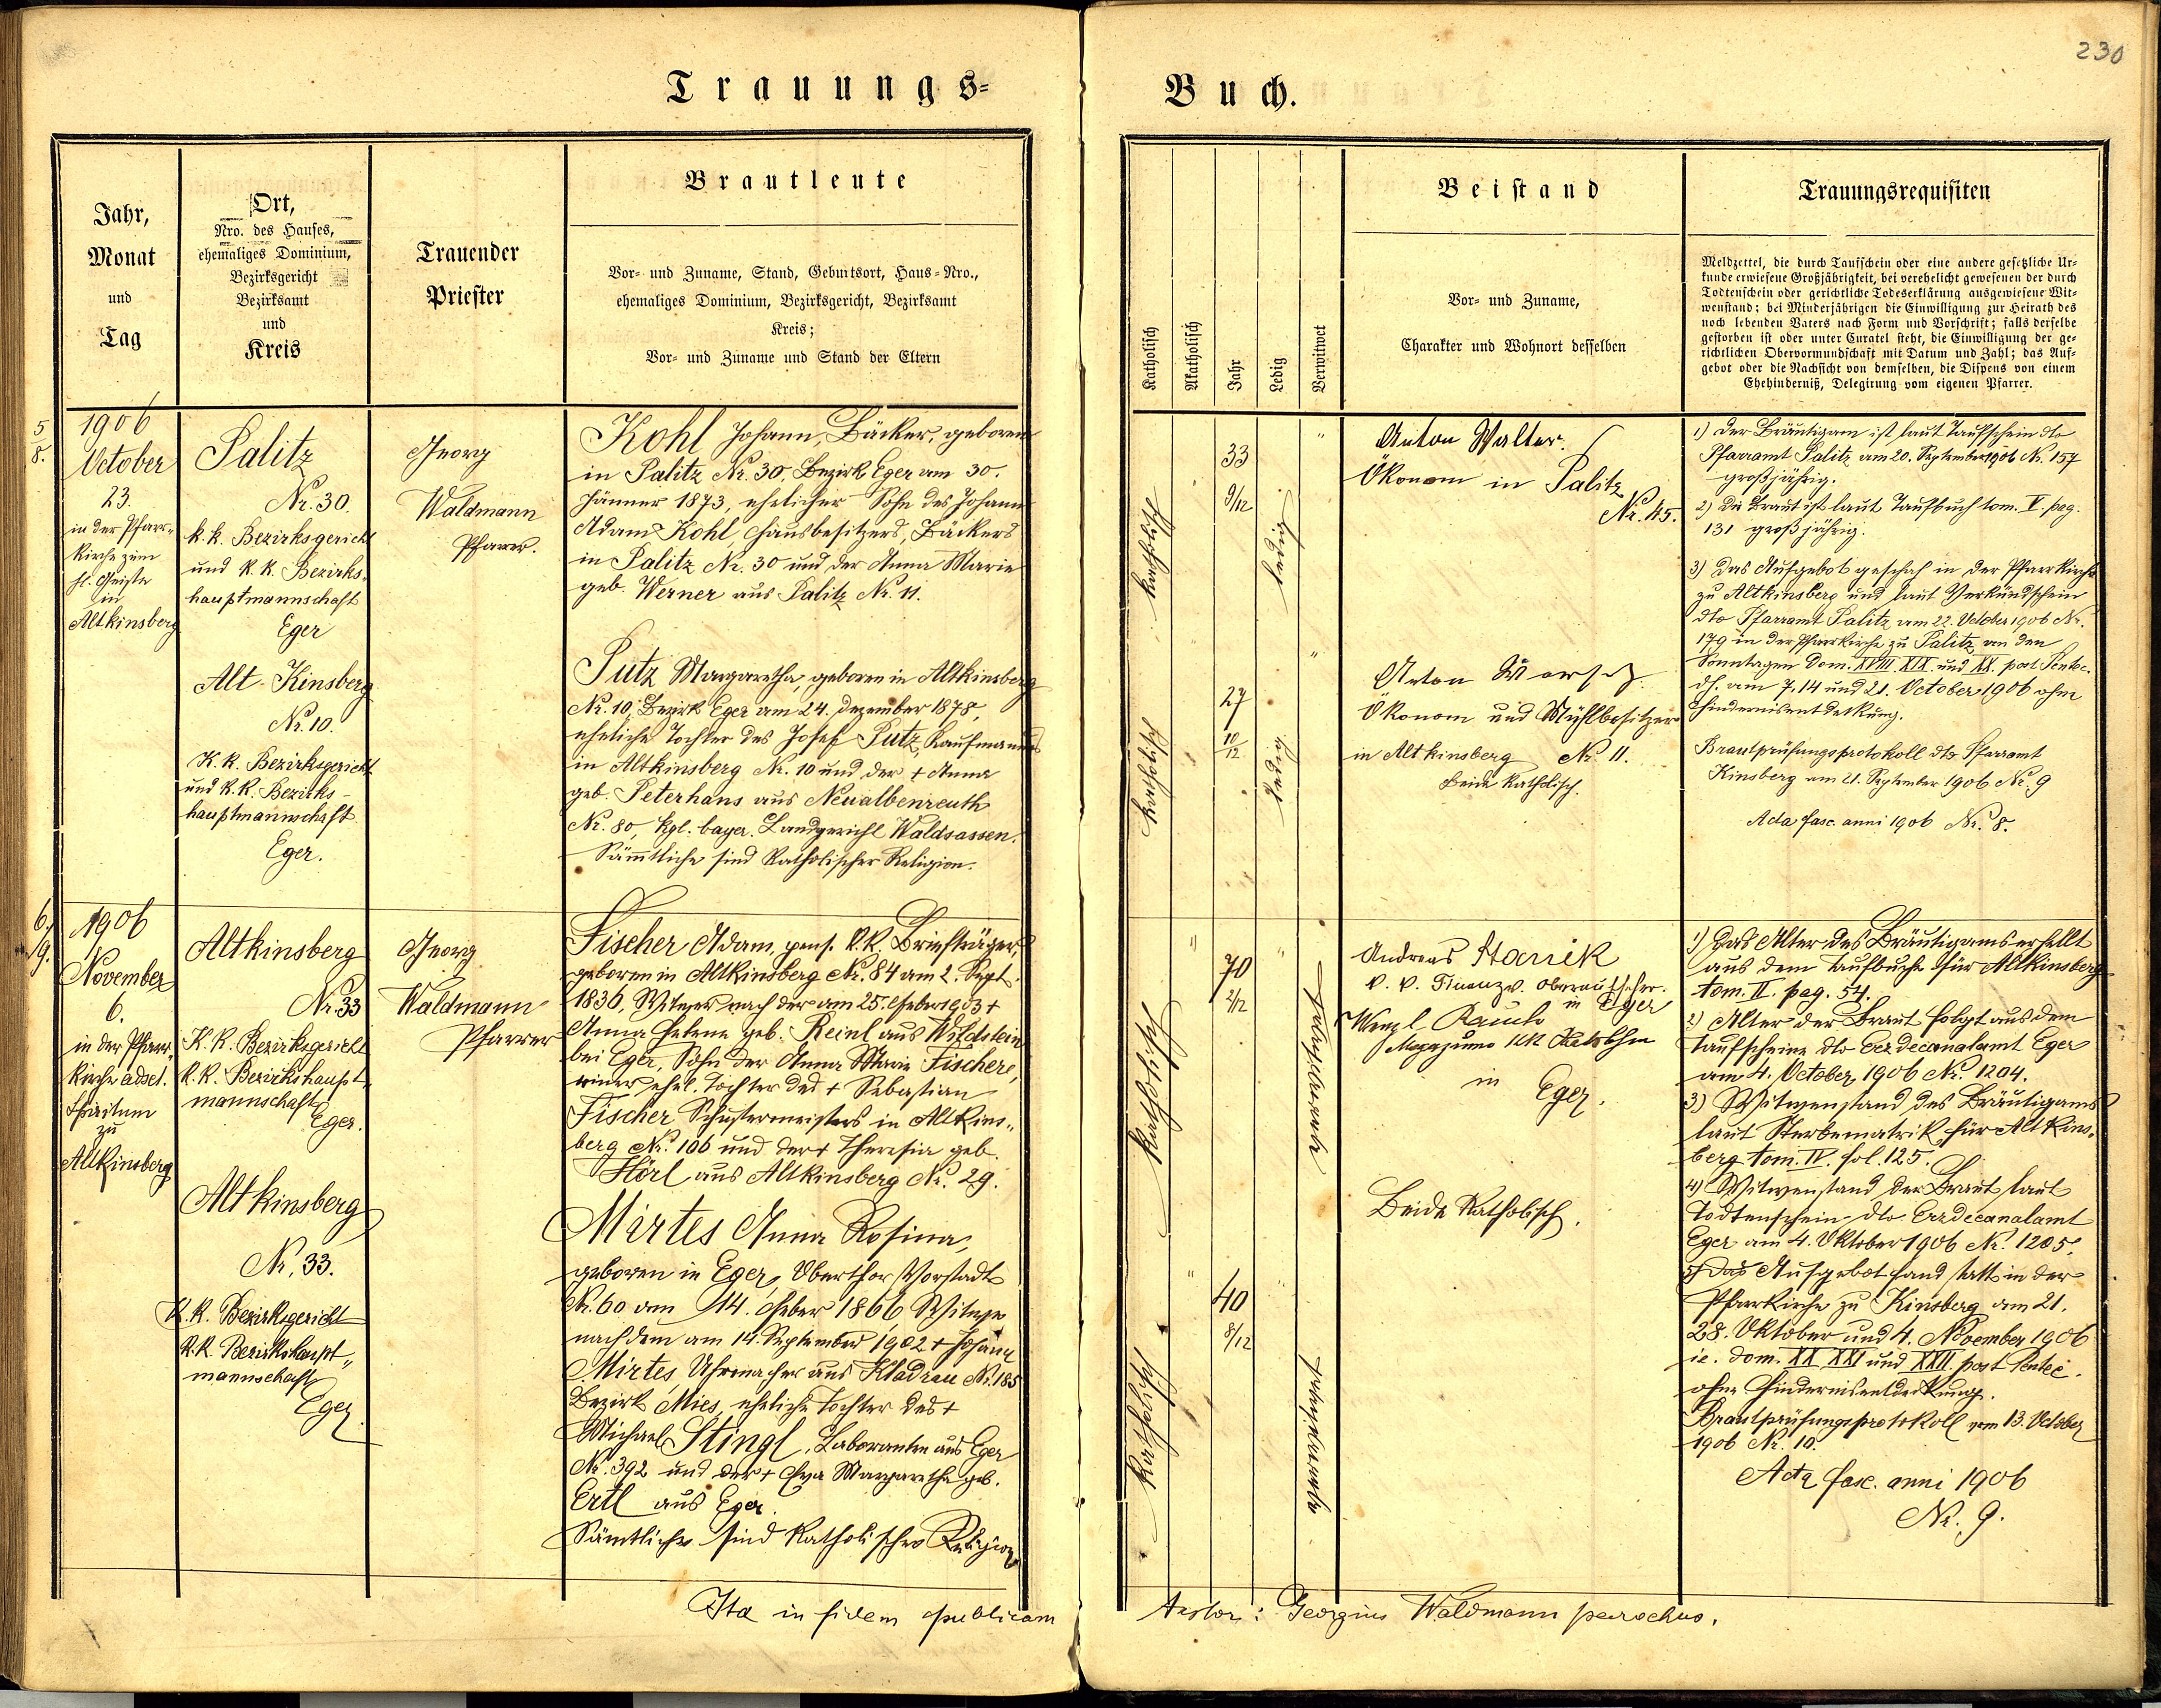 230
Trauungs=
Buch.
Jahr,
Monat
und
Tag
Ort,
Nro. des Hauses,
ehemaliges Dominium,
Bezirksgericht
Bezirksamt
und
Kreis
Trauender
Priester
Brautleute
Vor= und Zuname, Stand, Geburtsort, Haus=Nro.,
ehemaliges Dominium, Bezirksgericht, Bezirksamt
Kreis;
Vor= und Zuname und Stand der Eltern
5
8.
1906
October
23.
in der Pfarr-
kirche zum
hl. Geiste
in
Altkinsberg
Palitz
Nr. 30.
k.k. Bezirksgericht
und k.k. Bezirks-
hauptmannschaft
Eger
Alt-Kinsberg
Nr. 10.
K.k. Bezirksgericht
und k.k. Bezirks-
hauptmannschaft
Eger.
Georg
Waldmann
Pfarrer.
Kohl Johann, Bäcker, geboren
in Palitz Nr. 30, Bezirk Eger am 30.
Jänner 1873, ehelicher Sohn des Johann
Adam Kohl Hausbesitzers, Bäckers
in Palitz Nr. 30 und der Anna Marie
geb. Werner aus Palitz Nr. 11.
Putz Margaretha, geboren in Altkinsberg
Nr. 10, Bezirk Eger am 24. Dezember 1878,
eheliche Tochter des Josef Putz, Kaufmannes
in Altkinsberg Nr. 10 und der + Anna
geb. Peterhans aus Neualbenreuth
Nr. 80, kgl. bayer. Landgericht Waldsassen.
Sämmtliche sind katholischer Religion.
6.
9.
1906
November
6.
in der Pfarr-
kirche ad sct.
Spiritum
zu
Altkinsberg
Altkinsberg
Nr. 33
K.k. Bezirksgericht
k.k. Bezirkshaupt-
mannschaft
Eger.
Altkinsberg
Nr. 33.
K.k. Bezirksgericht
k.k. Bezirkshaupt-
mannschaft
Eger.
Georg
Waldmann
Pfarrer
Fischer Adam, pens. k.k. Briefträger,
geboren in Altkinsberg Nr. 84 am 2. Sept.
1836, Witwer nach der am 25. Feber 1903 +
Anna Helene geb. Reinl aus Wildstein
bei Eger, Sohn der Anna Marie Fischer,
einer ehel. Tochter des + Sebastian
Fischer Schustermeisters in Altkins-
berg Nr. 106 und der + Theresia geb.
Hörl aus Altkinsberg Nr. 29.
Mirtes Anna Rosina,
geboren in Eger, Oberthor Vorstadt
Nr. 60 am 14. Feber 1866 Witwe
nach dem am 14. September 1902 + Johann
Mirtes Uhrmacher aus Kladrau Nr. 185
Bezirk Mies, eheliche Tochter des +
Michael Stingl, Laboranten aus Eger
Nr. 392 und der + Eva Margaretha geb.
Ertl aus Eger.
Sämtliche sind katholischer Religion
Ita in fidem publicam
Katholisch
Akatholisch
Jahr
Ledig
Verwitwet
Beistand
Vor= und Zuname,
Charakter und Wohnort desselben
Trauungsrequisiten
Meldzettel, die durch Taufschein oder eine andere gesetzliche Ur=
kunde erwiesene Großjährigkeit, bei verehelicht gewesenen der durch
Todtenschein oder gerichtliche Todeserklärung ausgewiesene Wit=
wenstand; bei Minderjährigen die Einwilligung zur Heirath des
noch lebenden Vaters nach Form und Vorschrift; falls derselbe
gestorben ist oder unter Curatel steht, die Einwilligung der ge=
richtlichen Obervormundschaft mit Datum und Zahl; das Auf=
gebot oder die Nachsicht von demselben, die Dispens von einem
Ehehinderniß, Delegirung vom eigenen Pfarrer.
katholisch
33
9/12
ledig
Anton Walter.
Ökonom in Palitz
Nr. 45.
katholisch
27
10/12
ledig
Anton
Ökonom und Mühlbesitzer
in Altkinsberg Nr. 11.
Beide katholisch.
1) Der Bräutigam ist laut Taufschein dto
Pfarramt Palitz am 20. September 1906 Nr. 157
großjährig.
2) Die Braut ist laut Taufbuch tom. V. pag.
131 großjährig.
3) Das Aufgebot geschah in der Pfarrkirche
zu Altkinsberg und laut Verkündschein
dto Pfarramt Palitz am 22. October 1906 Nr.
179 in der Pfarrkirche zu Palitz an den
Sonntagen Dom. XVIII XIX und XX. post Pentec.
dh. am 7. 14 und 21. October 1906 ohne
Hindernisentdeckung.
Brautprüfungsprotokoll dto Pfarramt
Kinsberg am 21. September 1906 Nr. 9
Acta fasc. anni 1906 Nr. 8.
katholisch
70
2/12
verwitwet
Andreas Stanik
k. k. Finanzw. Oberaufseher.
in Eger
Wenzl Rauch
in Eger.
Beide katholisch.
katholisch
40
8/12
verwitwet
1) Das Alter des Bräutigams erhellt
aus dem Taufbuche für Altkinsberg
tom. II. pag. 54.
2) Alter der Braut folgt aus dem
Taufscheine dto Erzdecanalamt Eger
am 4. October 1906 Nr. 1204.
3) Witwenstand des Bräutigams
laut Sterbematrik für Altkins-
berg tom. IV. fol. 125.
4) Witwenstand der Braut laut
Todtenschein dto Erzdecanalamt
Eger am 4. Oktober 1906 Nr. 1205.
5) Das Aufgebot fand statt in der
Pfarrkirche zu Kinsberg am 21.
28. Oktober und 4. November 1906
ie. Dom. XX XXI und XXII. post Pentec.
ohne Hindernisentdeckung.
Brautprüfungsprotokoll vom 13. October
1906 Nr. 10.
Acta fasc. anni 1906
Nr. 9.
Testor: Georgius Waldmann parochus.